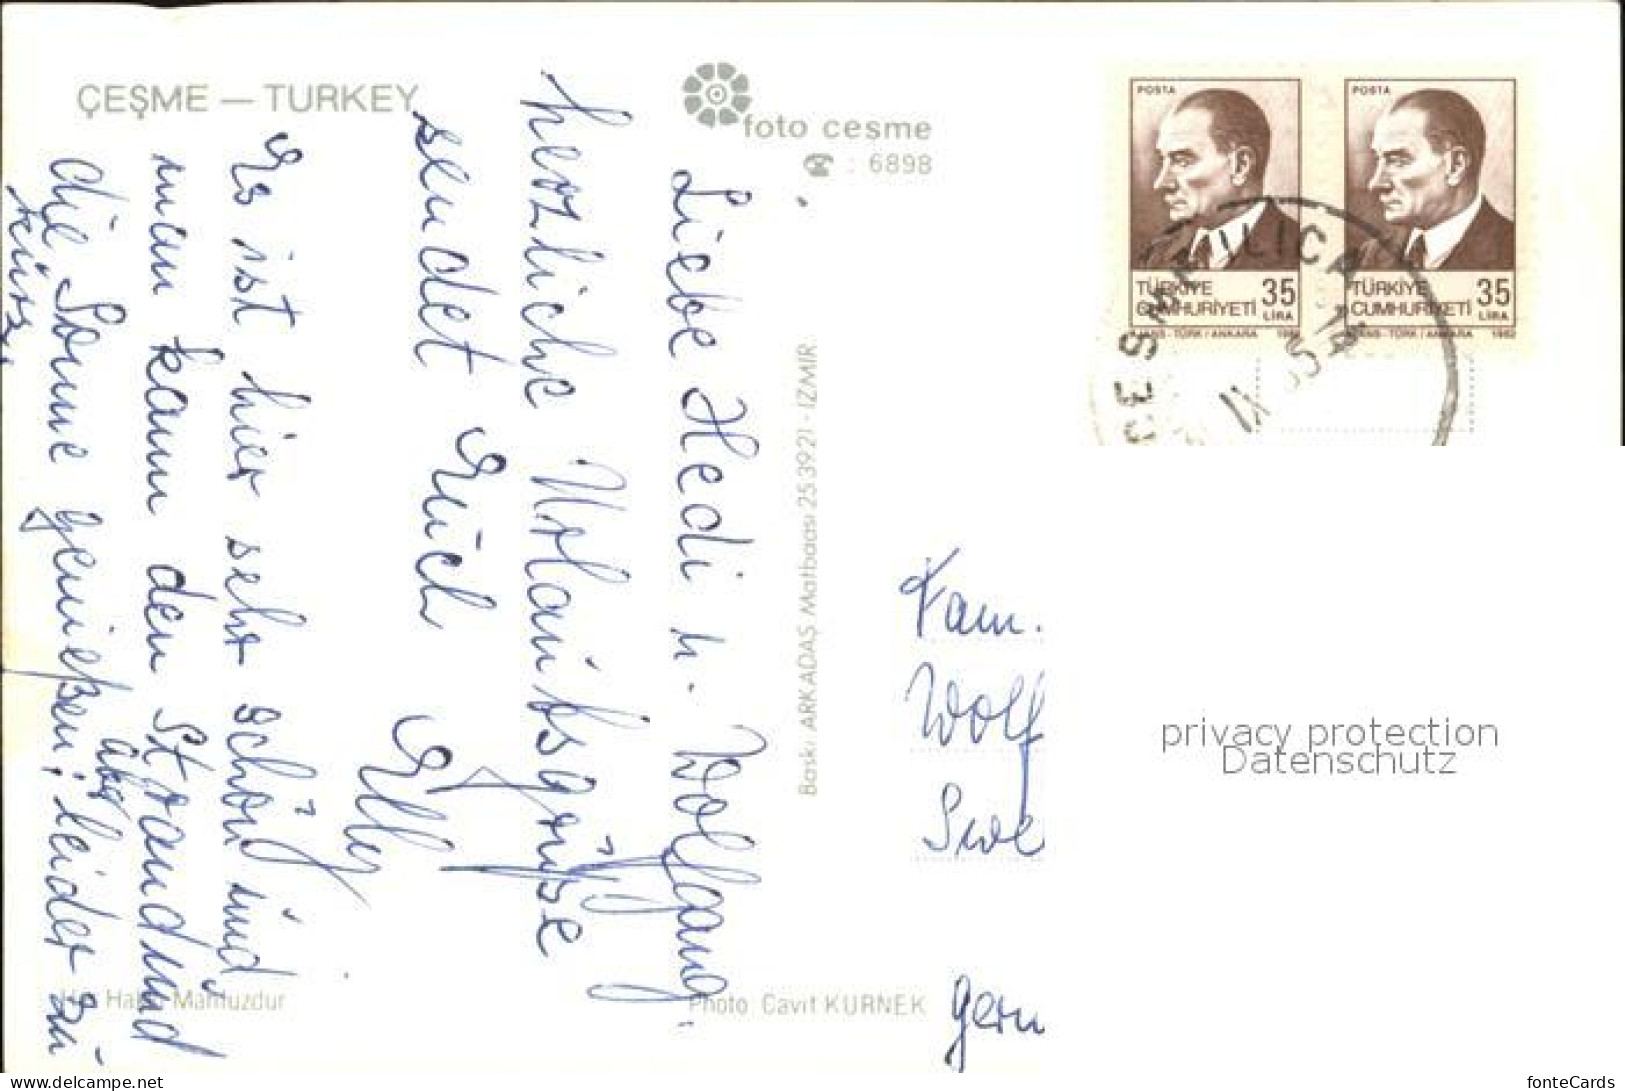 ÇEŞME — TURKEY
foto cesme
: 6898
Liebe Hedi u. Wolfgang.
herzliche Urlaubsgrüße
sendet Euch
Elly
Es ist hier sehr schön und
man kann den Strand und
die Sonne genießen; leider aber zu
kurz.
Baskı ARKADAŞ Matbaası 25 39 21 - İZMİR
Her Hakkı Mahfuzdur
Photo Cavit KÜRNEK
POSTA
TÜRKİYE
CUMHURİYETİ
35
LİRA
AJANS-TÜRK / ANKARA 1982
POSTA
TÜRKİYE
CUMHURİYETİ
35
LİRA
AJANS-TÜRK / ANKARA 1982
ÇEŞME ILICA
Fam.
Wolf
Germ
privacy protection
Datenschutz
delcampe.net
fonteCards